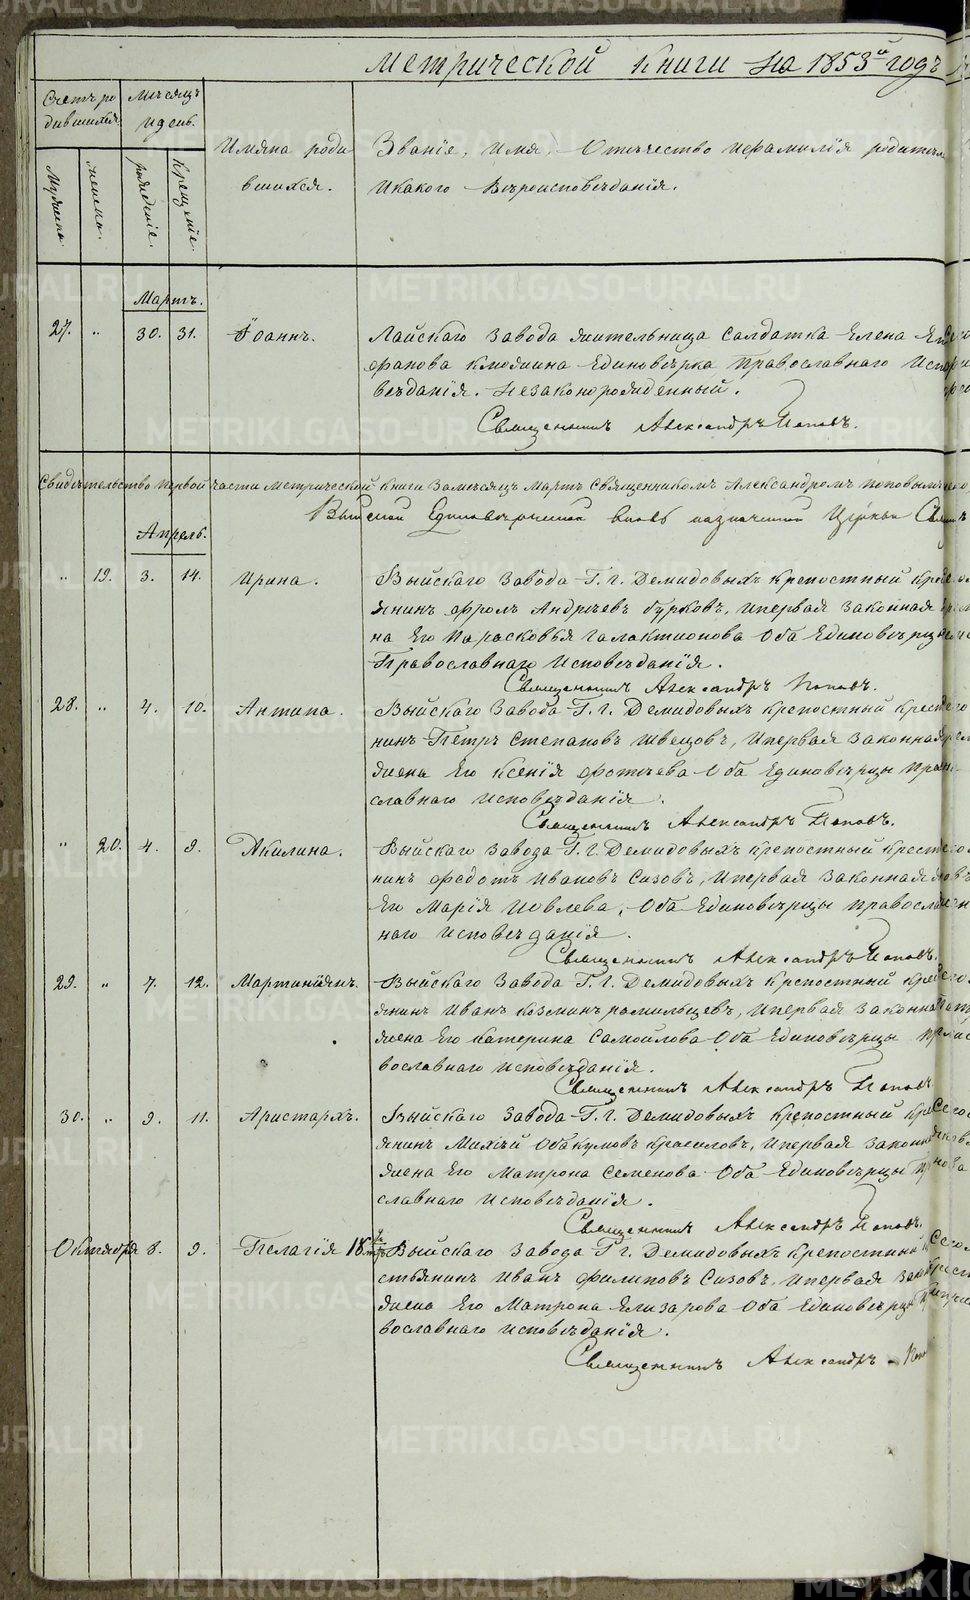 Метрической книги на 1853й годъ
Счетъ ро
дившихся.
Мѣсяцъ
и день.
Имяна роди
вшихся.
Званіе, имя, отечество и фамилія родител
и какого вѣроисповѣданія.
Мужеска.
Женска.
рожденіе.
Крещеніе.
Мартъ.
27. „ 30. 31. Іоаннъ. Лайскаго завода жительница солдатка Елена
фанова Клюжина Единовѣрка православнаго Испо
вѣданія. Незаконорожденный.
Священникъ Александръ Поповъ.
Свидѣтельство первой части метрической книги за мѣсяцъ Мартъ Священникомъ Александромъ Поповымъ
Выйской Единовѣрческой вновь назначенной Церкви
Апрель.
„ 19. 3. 14. Ирина. Выйскаго завода Г. г. Демидовыхъ крепостный кре
янинъ Фролъ Андреевъ Бурковъ, и первая законная
на Его Парасковья Галактионова Оба Единовѣрцы
Православнаго исповѣданія.
Священникъ Александръ Поповъ.
28. „ 4. 10. Антипа. Выйскаго завода Г. г. Демидовыхъ крепостный крест
нинъ Петръ Степановъ Швецовъ, и первая законная
жена Его Ксенія Фотеева Оба Единовѣрцы Пра
славнаго исповѣданія.
Священникъ Александръ Поповъ.
„ 20. 4. 9. Акилина. Выйскаго завода Г. г. Демидовыхъ крепостный крест
нинъ Федотъ Ивановъ Сизовъ, и первая законная
Его Марія Иовлева, Оба Единовѣрцы православ
наго исповѣданія.
Священникъ Александръ Поповъ.
29. „ 7. 12. Мартиніянъ. Выйскаго завода Г. г. Демидовыхъ крепостный кре
янинъ Иванъ Козминъ, и первая законна
жена Его Катерина Самоилова Оба Единовѣрцы пра
вославнаго исповѣданія.
Священникъ Александръ Поповъ
30. „ 9. 11. Аристархъ. Выйскаго завода Г. г. Демидовыхъ крепостный кре
янинъ Михѣй Обакумовъ Красиловъ, и первая законна
жена Его Матрона Семенова Оба Единовѣрцы
славнаго исповѣданія.
Священникъ Александръ Поповъ.
Октября 8. 9. Пелагія Выйскаго завода Г. г. Демидовыхъ крепостный
стьянинъ Иванъ Филиповъ Сизовъ, и первая зак
жена Его Матрона Елизарова Оба Единовѣрцы
вославнаго исповѣданія.
Священникъ Александръ Попо
METRIKI.GASO-URAL.RU